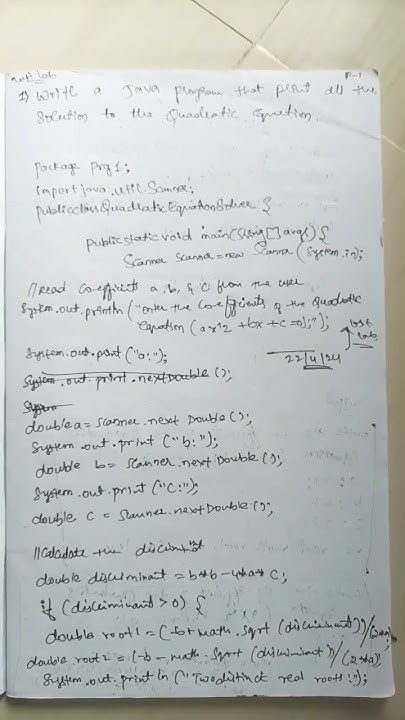 P-1
1) Write a Java program that print all the
Solution to the Quadratic Equation.
package prg1;
import java.util.Scanner;
public class QuadraticEquationSolver {
public static void main(String[] args) {
Scanner Scanner = new Scanner (System.in);
//read Co-efficients a, b, & c from the user
System.out.println ("enter the Co-efficients of the Quadratic
Equation (ax^2 + bx + c = 0);");
lab
22/4/24
System.out.print ("a:");
System.out.print.nextDouble ();
System
double a = Scanner.next Double ();
System.out.print ("b:");
double b = Scanner.next Double ();
System.out.print ("C:");
double C = Scanner.nextDouble ();
//Calculate the discriminant
double discriminant = b*b - 4*a* C;
if (discriminant > 0) {
double root1 = (-b + math.sqrt (discriminant))/(2*a);
double root2 = (-b - math.sqrt (discriminant)/(2*a);
System.out.print ln ("Two distinct real roots:");